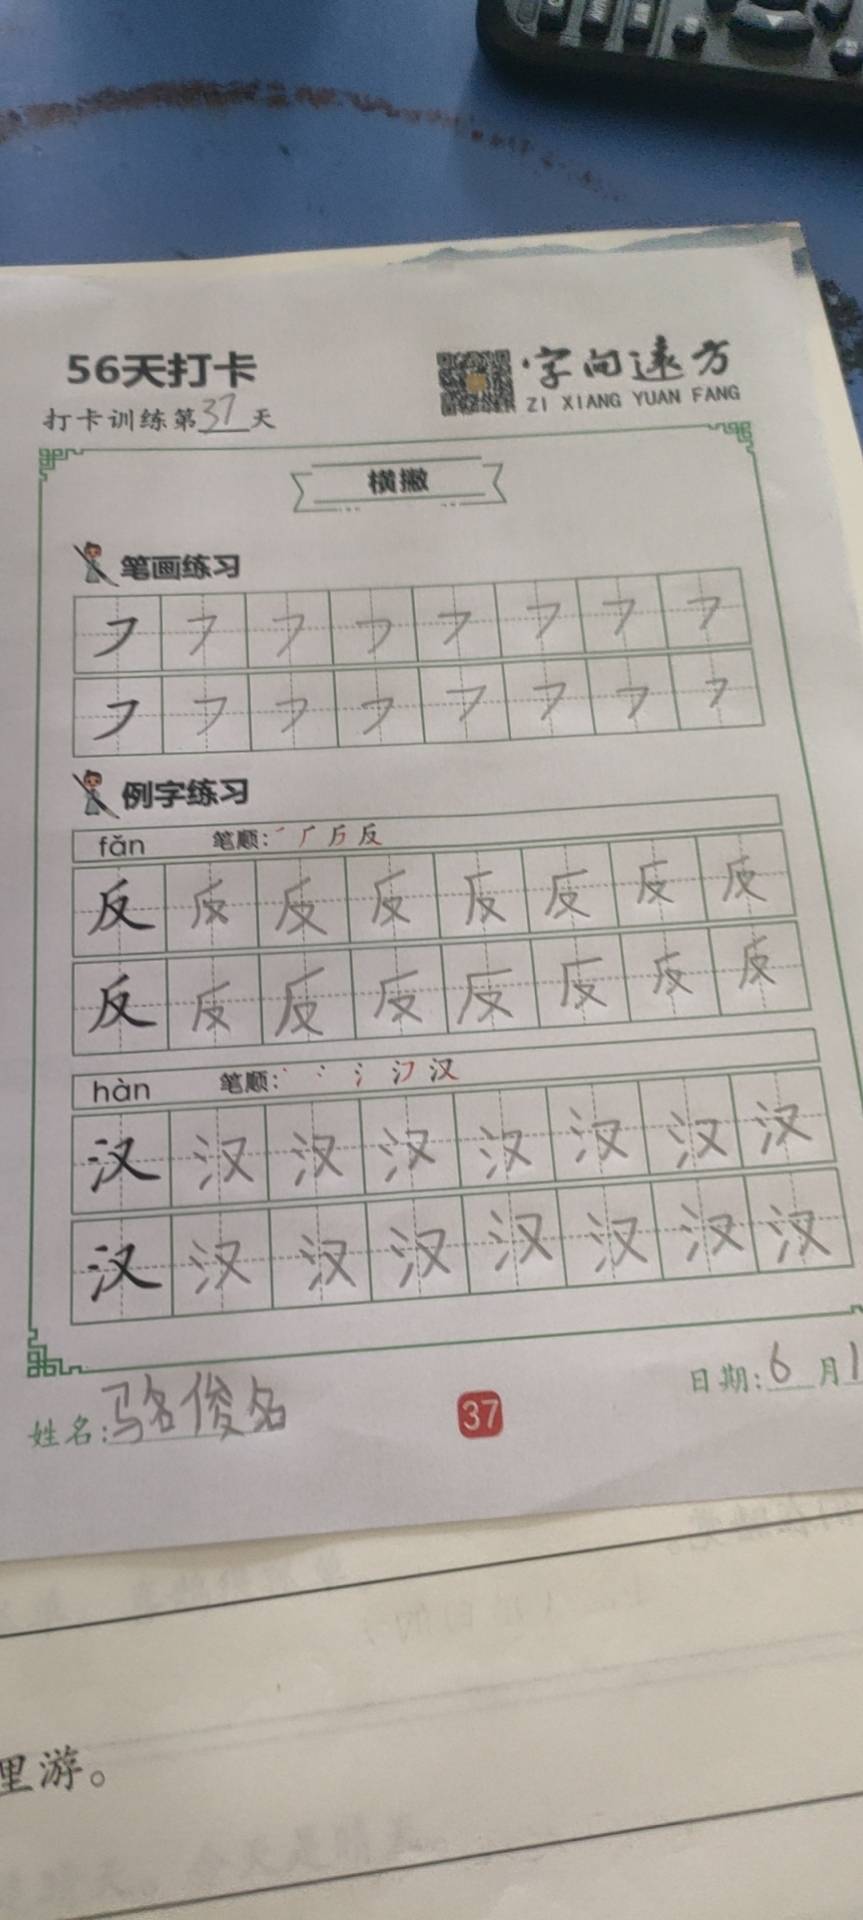 56天打卡
字向远方
打卡训练第37天
ZI XIANG YUAN FANG
横撇
笔画练习
㇇ ㇇ ㇇ ㇇ ㇇ ㇇ ㇇ ㇇
㇇ ㇇ ㇇ ㇇ ㇇ ㇇ ㇇ ㇇
例字练习
fǎn 笔顺: 反
反 反 反 反 反 反 反 反
反 反 反 反 反 反 反 反
hàn 笔顺: 汉
汉 汉 汉 汉 汉 汉 汉 汉
汉 汉 汉 汉 汉 汉 汉 汉
姓名:骆俊名
37
日期:6月1
里游。